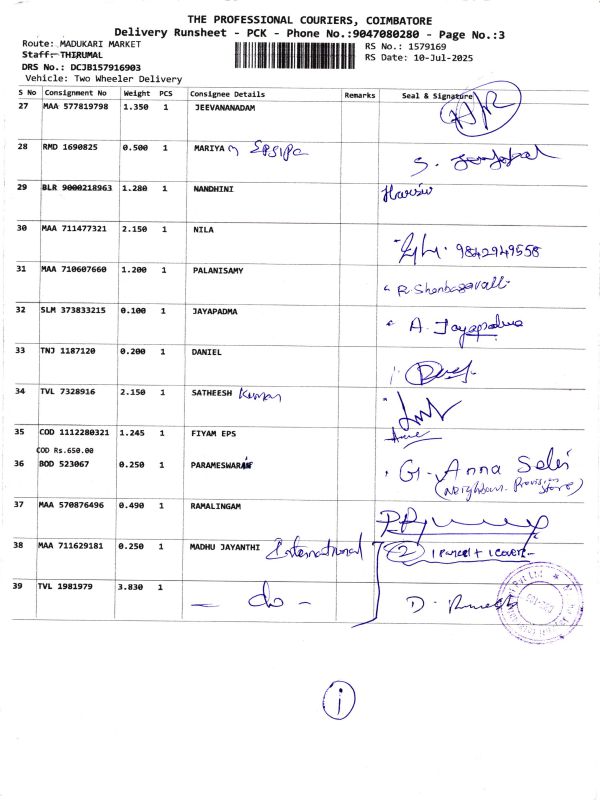 THE PROFESSIONAL COURIERS, COIMBATORE
Delivery Runsheet - PCK - Phone No.:9047080280 - Page No.:3
Route: MADUKARI MARKET RS No.: 1579169
Staff: THIRUMAL RS Date: 10-Jul-2025
DRS No.: DCJB157916903
Vehicle: Two Wheeler Delivery
S No Consignment No Weight PCS Consignee Details Remarks Seal & Signature
27 MAA 577819798 1.350 1 JEEVANANADAM
28 RMD 1690825 0.500 1 MARIYA
29 BLR 9000218963 1.280 1 NANDHINI
30 MAA 711477321 2.150 1 NILA 9842949558
31 MAA 710607660 1.200 1 PALANISAMY R. Shenbagavalli
32 SLM 373833215 0.100 1 JAYAPADMA A. Jayapadma
33 TNJ 1187120 0.200 1 DANIEL
34 TVL 7328916 2.150 1 SATHEESH Kumar
35 COD 1112280321 1.245 1 FIYAM EPS
COD Rs.650.00
36 BOD 523067 0.250 1 PARAMESWARAN G. Anna Selvi
(Neighbour. Provision Store)
37 MAA 570876496 0.490 1 RAMALINGAM
38 MAA 711629181 0.250 1 MADHU JAYANTHI International (2) 1 parcel + 1 cover
39 TVL 1981979 3.830 1 — do — D.
i